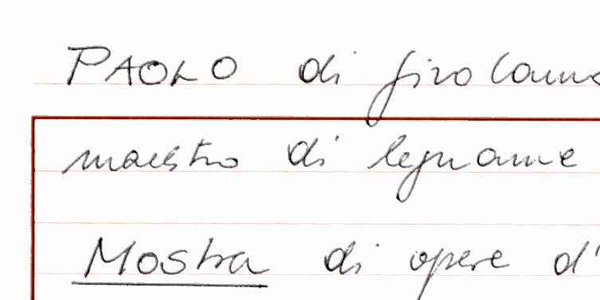 PAOLO di Girolamo
maestro di legname
Mostra di opere d'